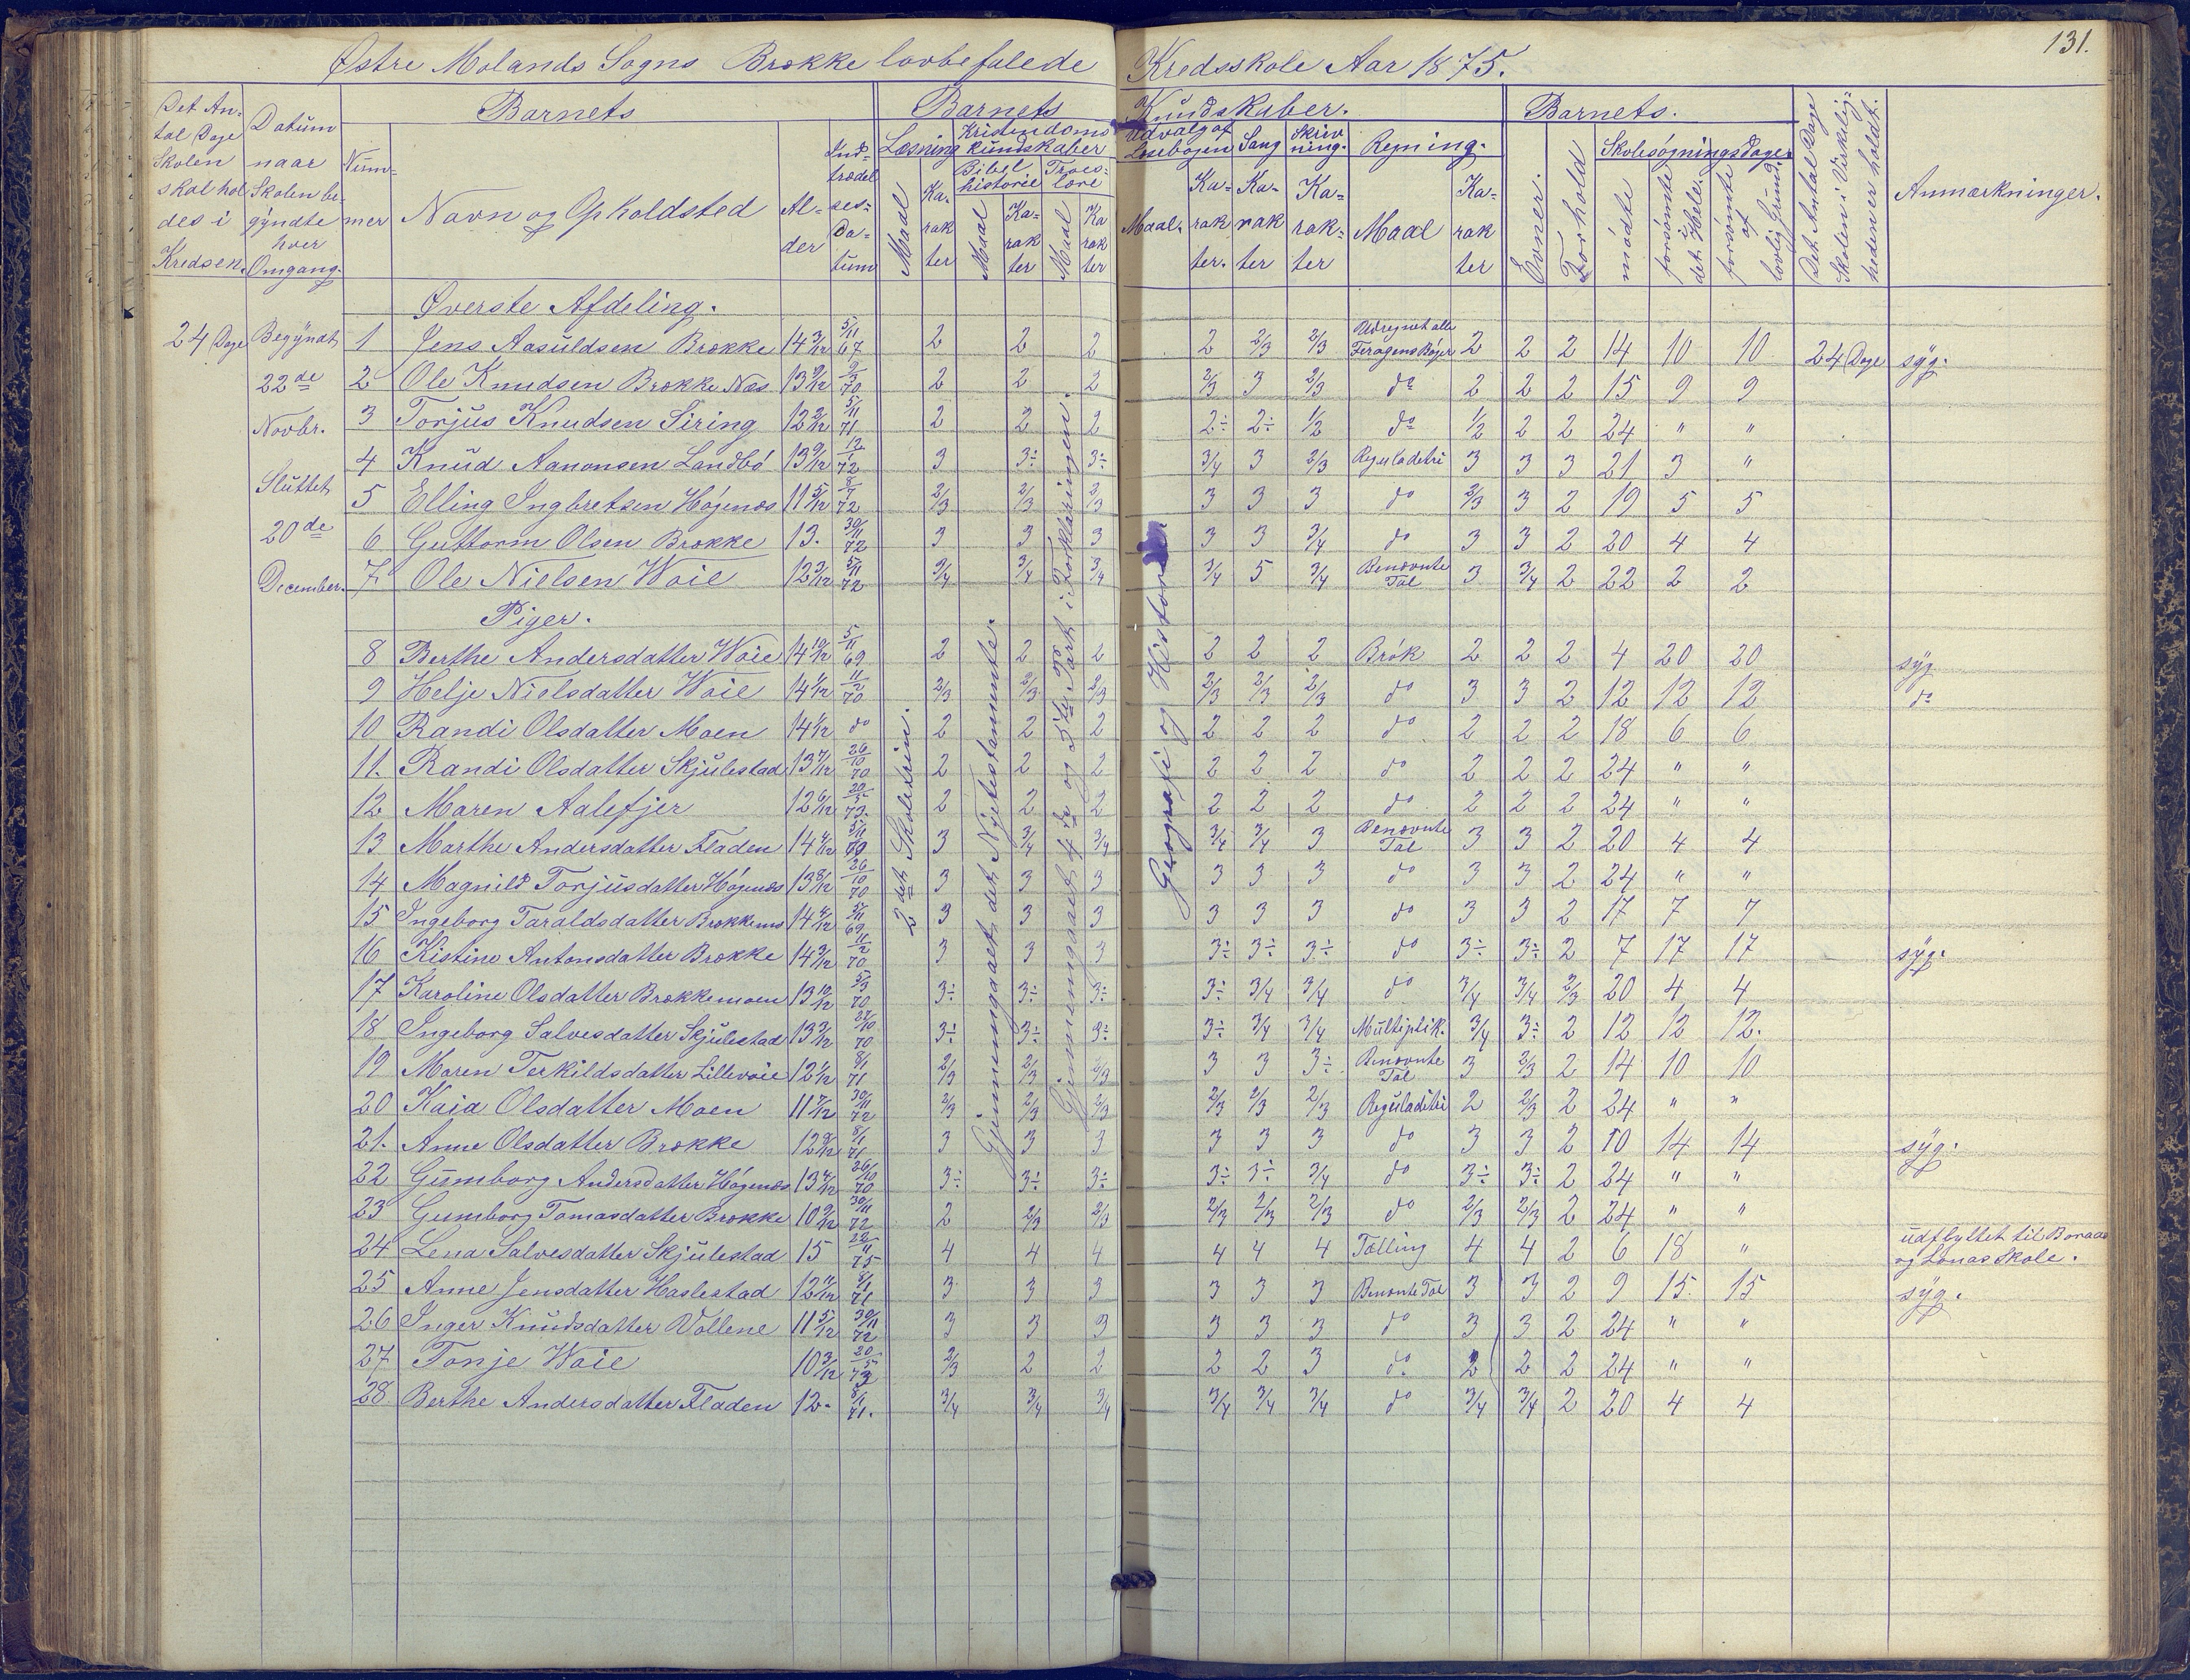 131.
Østre Molands Sogns Brække lovbefalede Kredsskole Aar 1875.
Det Antal Dage Skolen skal holdes i Kredsen.
Datum naar Skolen begÿndte hver Omgang.
Barnets
Nummer
Navn og Opholdsted
Alder
Indtrædelsesdatum
Barnets Kundskaber.
Læsning
Maal
Karakter
Kristendomskundskaber
Bibelhistorie
Maal
Karakter
Troeslære
Maal
Karakter
Udvalg af Læsebogen
Maal
Karakter.
Sang
Karakter
Skrivning.
Karakter
Regning.
Maal
Karakter
Barnets.
Evner.
Forhold
Skolesøgningsdage.
mødte
forsømte i det Hele.
forsømte af lovlig Grund.
Det Antal Dage Skolen i Virkeligheden er holdt.
Anmærkninger.
24 Dage
Begÿndt 22de Novbr. Sluttet 20de December.
2det Skoletrin.
Gjennemgaaet det Nÿetestamente.
Gjennemgaaet 4de og 5te Part i Forklaringen.
Geografi og Historie
Øverste Afdeling.
1 Jens Aasuldsen Brække 14 3/12 5/11 67 2 2 2 2 2/3 2/3 Udregnet alle Feragens Bøger 2 2 2 14 10 10 24 Dage syg.
2 Ole Knudsen Brække Næs 13 9/12 9/3 70 2 2 2 2/3 3 2/3 do 2 2 2 15 9 9
3 Torjus Knudsen Siring 12 2/12 5/11 71 2 2 2 2÷ 2÷ 1/2 do 1/2 2 2 24 " "
4 Knud Aanonsen Landbø 13 9/12 12/1 72 3 3÷ 3÷ 3/4 3 2/3 Reguladetri 3 3 3 21 3 "
5 Elling Ingbretsen Høgenæs 11 5/12 8/1 72 2/3 2/3 2/3 3 3 3 do 2/3 3 2 19 5 5
6 Guttorm Olsen Brække 13. 30/11 72 3 3 3 3 3 3/4 do 3 3 2 20 4 4
7 Ole Nielsen Woie 12 3/12 5/11 72 3/4 3/4 3/4 3/4 5 3/4 Benævnte Tal 3 3/4 2 22 2 2
Piger.
8 Berthe Andersdatter Woie 14 10/12 5/11 69 2 2 2 2 2 2 Brøk 2 2 2 4 20 20 syg
9 Helje Nielsdatter Woie 14 1/12 11/2 70 2/3 2/3 2/3 2/3 2/3 2/3 do 3 3 2 12 12 12 do
10 Randi Olsdatter Moen 14 1/12 do 2 2 2 2 2 2 do 2 2 2 18 6 6
11. Randi Olsdatter Skjulestad 13 7/12 26/10 70 2 2 2 2 2 2 do 2 2 2 24 " "
12 Maren Aalefjer 12 6/12 20/5 73. 2 2 2 2 2 2 do 2 2 2 24 " "
13 Marthe Andersdatter Fladen 14 4/12 5/11 69 3 3/4 3/4 3/4 3/4 3 Benævnte Tal 3 3 2 20 4 4
14 Magnild Torjusdatter Høgenæs 13 8/12 26/10 70 3 3 3 3 3 3 do 3 3 2 24 " "
15 Ingeborg Taraldsdatter Brækkemo 14 4/12 5/11 69 3 3 3 3 3 3 do 3 3 2 17 7 7
16 Kistine Antonsdatter Brække 14 3/12 11/2 70 3 3 3 3÷ 3÷ 3÷ do 3÷ 3÷ 2 7 17 17 syg.
17 Karoline Olsdatter Brækkemoen 13 10/12 5/3 70 3÷ 3÷ 3÷ 3÷ 3/4 3/4 do 3/4 3/4 2/3 20 4 4
18 Ingeborg Salvesdatter Skjulestad 13 3/12 27/10 70 3÷ 3÷ 3÷ 3÷ 3/4 3/4 Multiplik. 3/4 3÷ 2 12 12 12.
19 Maren Terkildsdatter Lillevoie 12 1/12 8/1 71 2/3 2/3 2/3 3 3 3÷ Benævnte Tal 3 2/3 2 14 10 10
20 Kaia Olsdatter Moen 11 7/12 30/11 72 2/3 2/3 2/3 2/3 2/3 2/3 Reguladetri 2 2/3 2 24 " "
21. Anne Olsdatter Brække 12 9/12 8/1 71 3 3 3 3 3 3 do 3 3 2 10 14 14 syg.
22 Gumborg Andersdatter Høgenæs 13 4/12 26/10 70 3÷ 3÷ 3÷ 3÷ 3÷ 3/4 do 3÷ 3÷ 2 24 " "
23 Gumborg Tomasdatter Brække 10 9/12 30/11 72 2 2/3 2/3 2/3 2/3 2/3 do 2/3 2/3 2 24 " "
24 Lena Salvesdatter Skjulestad 15 22/11 75 4 4 4 4 4 4 Tælling 4 4 2 6 18 " udflyttet til Boraas og Lonas Skole.
25 Anne Jensdatter Haslestad 12 11/12 8/1 71 3 3 3 3 3 3 Benævnte Tal 3 3 2 9 15 15 syg.
26 Inger Knudsdatter Vollene 11 5/12 30/11 72 3 3 3 3 3 3 do 3 3 2 24 " "
27 Tonje Woie 10 3/12 20/5 73 2/3 2 2 2 2 3 do. 2 2 2 24 " "
28 Berthe Andersdatter Fladen 12. 8/1 71. 3/4 3/4 3/4 3/4 3/4 3/4 do 3/4 3/4 2 20 4 4